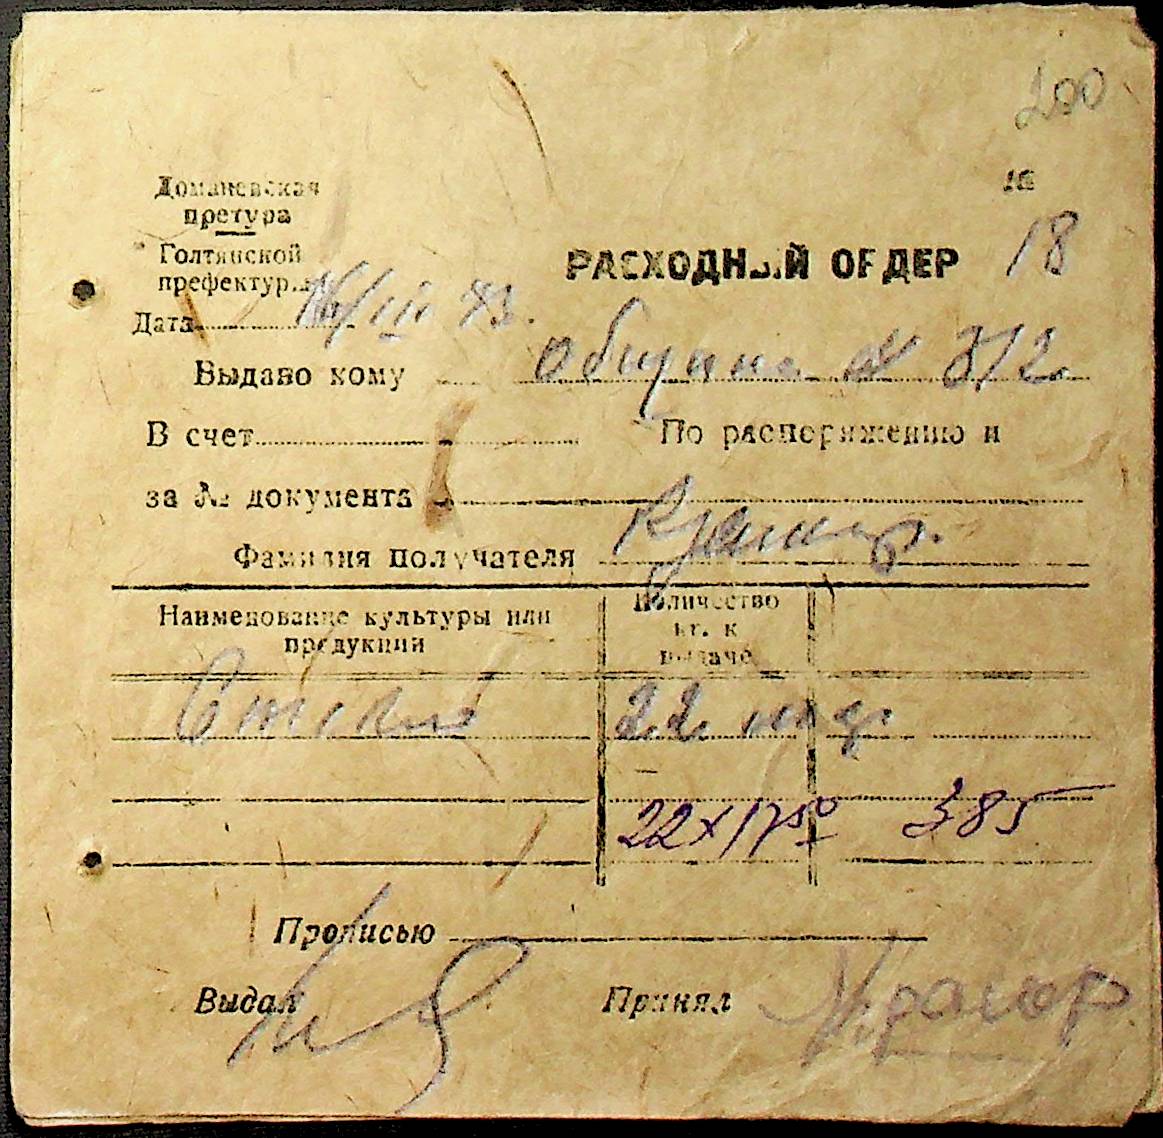 200
Доманевская
претура
Голтянской
префектуры
№
РАСХОДНЫЙ ОРДЕР 18
Дата 16/III 43.
Выдано кому община № 312
В счет По распоряжению и
за № документа
Фамилия получателя
Наименование культуры или
продукции
Количество
кг. к
выдаче
22
22 х 17 50 385
Прописью
Выдал Принял